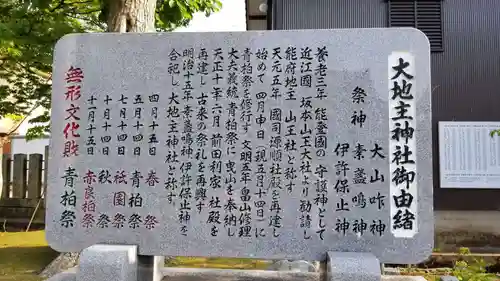 大地主神社御由緒
祭神 大山咋神
素盞鳴神
伊許保止神
養老三年 能登國の守護神として
近江國 坂本山王大社より勧請し
能府地主 山王社と称す
天元五年 國司源順 青柏祭を
始めて 四月申日(現五月十四日)に
青柏祭を修行す 文明五年畠山修理
大夫義統 青柏祭に曳山を奉納し
天正十一年六月 前田利家 社殿を
再建し古来の祭礼を再興す
明治十五年素盞鳴神伊許保止神を
合祀し大地主神社と称す。
四月十五日 春祭
五月十四日 青柏祭
七月十四日 祇園祭
十月十四日 秋祭
十一月十五日 赤旗柏祭
無形文化財 青柏祭